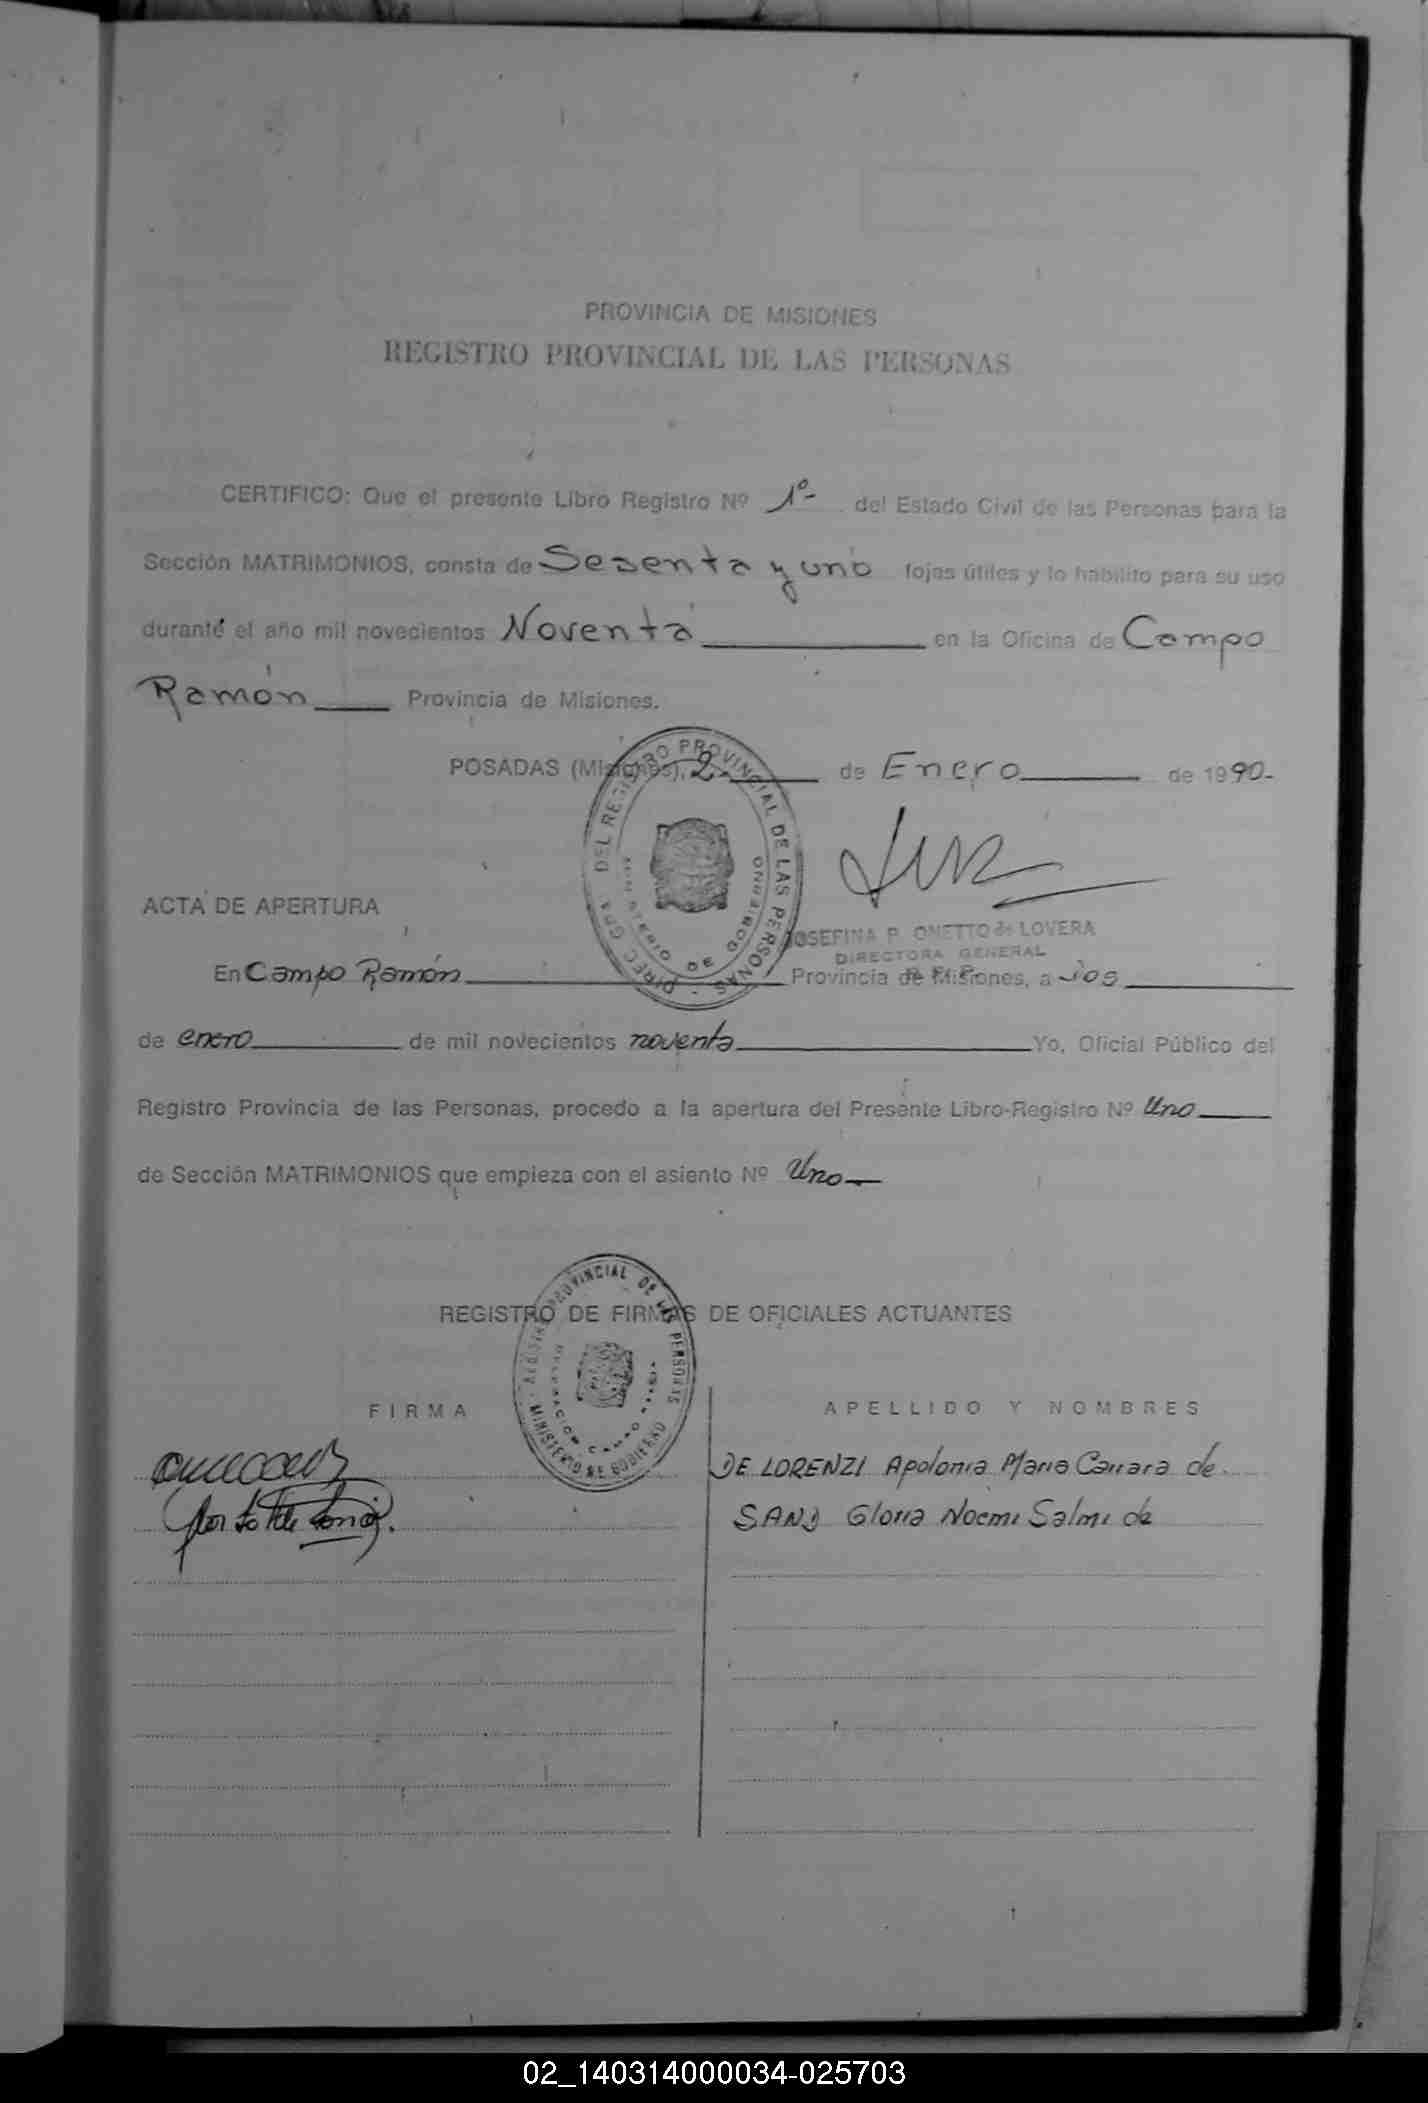 PROVINCIA DE MISIONES
REGISTRO PROVINCIAL DE LAS PERSONAS
CERTIFICO: Que el presente Libro Registro Nº 1º- del Estado Civil de las Personas para la
Sección MATRIMONIOS, consta de Sesenta y uno fojas útiles y lo habilito para su uso
durante el año mil novecientos Noventa en la Oficina de Campo
Ramón Provincia de Misiones.
POSADAS (Misiones), 2 de Enero de 1990-
DIREC. GRAL. DEL REGISTRO PROVINCIAL DE LAS PERSONAS
MINISTERIO DE GOBIERNO
JOSEFINA P. ONETTO de LOVERA
DIRECTORA GENERAL
ACTA DE APERTURA
En Campo Ramón Provincia de Misiones, a dos
de enero de mil novecientos noventa Yo, Oficial Público del
Registro Provincia de las Personas, procedo a la apertura del Presente Libro-Registro Nº Uno
de Sección MATRIMONIOS que empieza con el asiento Nº Uno
REGISTRO DE FIRMAS DE OFICIALES ACTUANTES
REGISTRO PROVINCIAL DE LAS PERSONAS
MINISTERIO DE GOBIERNO
FIRMA APELLIDO Y NOMBRES
DE LORENZI Apolonia Maria Carrara de
SAND Gloria Noemi Salmi de
02_140314000034-025703